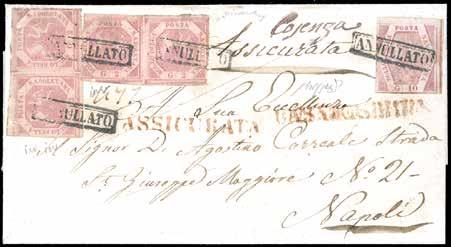 Cosenza
Assicurata
POSTA
POSTA
POSTA
POSTA
G 2
G 2
G 10
ANNULLATO
ANNULLATO
ANNULLATO
ANNULLATO
ASSICURATA
A Sua Eccellenza
Signor D. Agostino Correale Strada
S. Giuseppe Maggiore No 21-
Napoli